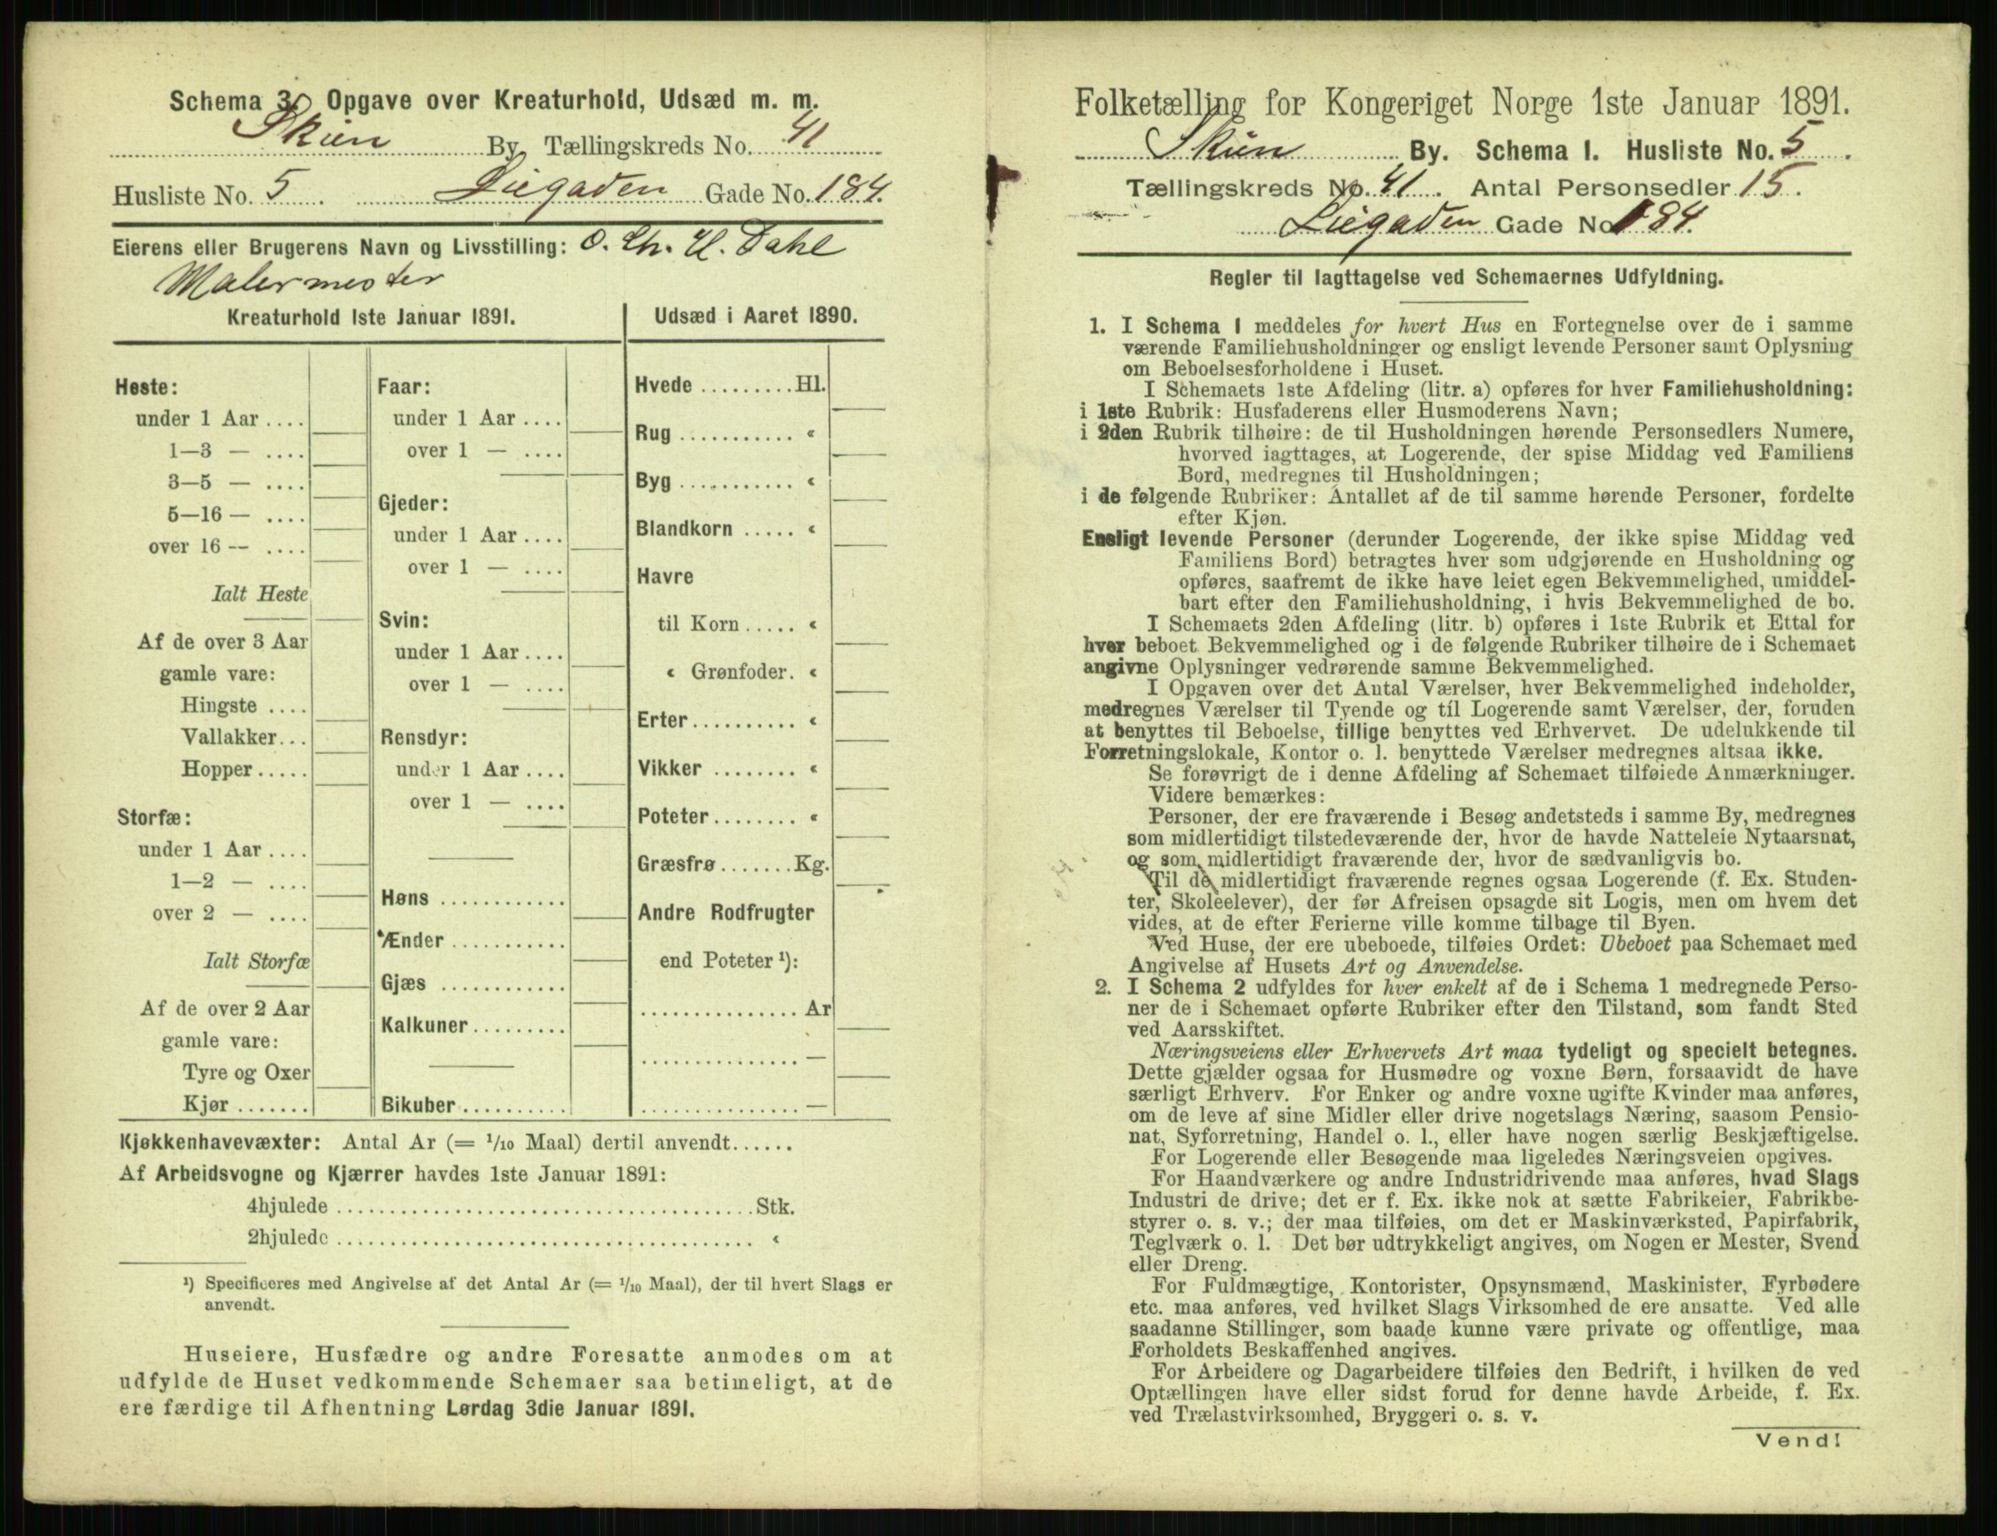 Schema 3. Opgave over Kreaturhold, Udsæd m. m.
Skien By Tællingskreds No. 41
Husliste No. 5 Liegaden Gade No. 184.
Eierens eller Brugerens Navn og Livsstilling: O. Ch. H. Dahl
Malermester
Kreaturhold 1ste Januar 1891.
Heste:
under 1 Aar ....
1—3 — ....
3—5 — ....
5—16 — ....
over 16 — ....
Ialt Heste
Af de over 3 Aar
gamle vare:
Hingste ....
Vallakker...
Hopper.....
Storfæ:
under 1 Aar ....
1—2 — ....
over 2 — ....
Ialt Storfæ
Af de over 2 Aar
gamle vare:
Tyre og Oxer
Kjør .......
Faar:
under 1 Aar ....
over 1 — ....
Gjeder:
under 1 Aar ....
over 1 — ....
Svin:
under 1 Aar ....
over 1 — ....
Rensdyr:
under 1 Aar ....
over 1 — ....
Høns ............
Ænder ...........
Gjæs ............
Kalkuner .........
Bikuber ..........
Udsæd i Aaret 1890.
Hvede .........Hl.
Rug ........... «
Byg ........... «
Blandkorn ..... «
Havre
til Korn ..... «
« Grønfoder. «
Erter .......... «
Vikker ........ «
Poteter ........ «
Græsfrø .......Kg.
Andre Rodfrugter
end Poteter ¹):
............... Ar
............... —
............... —
Kjøkkenhavevæxter: Antal Ar (= 1/10 Maal) dertil anvendt......
Af Arbeidsvogne og Kjærrer havdes 1ste Januar 1891:
4hjulede ....................................... Stk.
2hjulede ....................................... «
¹) Specificeres med Angivelse af det Antal Ar (= 1/10 Maal), der til hvert Slags er
anvendt.
Huseiere, Husfædre og andre Foresatte anmodes om at
udfylde de Huset vedkommende Schemaer saa betimeligt, at de
ere færdige til Afhentning Lørdag 3die Januar 1891.
Folketælling for Kongeriget Norge 1ste Januar 1891.
Skien By. Schema 1. Husliste No. 5.
Tællingskreds No. 41. Antal Personsedler 15.
Liegaden Gade No. 184.
Regler til Iagttagelse ved Schemaernes Udfyldning.
1. I Schema 1 meddeles for hvert Hus en Fortegnelse over de i samme
værende Familiehusholdninger og ensligt levende Personer samt Oplysning
om Beboelsesforholdene i Huset.
I Schemaets 1ste Afdeling (litr. a) opføres for hver Familiehusholdning:
i 1ste Rubrik: Husfaderens eller Husmoderens Navn;
i 2den Rubrik tilhøire: de til Husholdningen hørende Personsedlers Numere,
hvorved iagttages, at Logerende, der spise Middag ved Familiens
Bord, medregnes til Husholdningen;
i de følgende Rubriker: Antallet af de til samme hørende Personer, fordelte
efter Kjøn.
Ensligt levende Personer (derunder Logerende, der ikke spise Middag ved
Familiens Bord) betragtes hver som udgjørende en Husholdning og
opføres, saafremt de ikke have leiet egen Bekvemmelighed, umiddel-
bart efter den Familiehusholdning, i hvis Bekvemmelighed de bo.
I Schemaets 2den Afdeling (litr. b) opføres i 1ste Rubrik et Ettal for
hver beboet Bekvemmelighed og i de følgende Rubriker tilhøire de i Schemaet
angivne Oplysninger vedrørende samme Bekvemmelighed.
I Opgaven over det Antal Værelser, hver Bekvemmelighed indeholder,
medregnes Værelser til Tyende og til Logerende samt Værelser, der, foruden
at benyttes til Beboelse, tillige benyttes ved Erhvervet. De udelukkende til
Forretningslokale, Kontor o. l. benyttede Værelser medregnes altsaa ikke.
Se forøvrigt de i denne Afdeling af Schemaet tilføiede Anmærkninger.
Videre bemærkes:
Personer, der ere fraværende i Besøg andetsteds i samme By, medregnes
som midlertidigt tilstedeværende der, hvor de havde Natteleie Nytaarsnat,
og som midlertidigt fraværende der, hvor de sædvanligvis bo.
Til de midlertidigt fraværende regnes ogsaa Logerende (f. Ex. Studen-
ter, Skoleelever), der før Afreisen opsagde sit Logis, men om hvem det
vides, at de efter Ferierne ville komme tilbage til Byen.
Ved Huse, der ere ubeboede, tilføies Ordet: Ubeboet paa Schemaet med
Angivelse af Husets Art og Anvendelse.
2. I Schema 2 udfyldes for hver enkelt af de i Schema 1 medregnede Perso-
ner de i Schemaet opførte Rubriker efter den Tilstand, som fandt Sted
ved Aarsskiftet.
Næringsveiens eller Erhvervets Art maa tydeligt og specielt betegnes.
Dette gjælder ogsaa for Husmødre og voxne Børn, forsaavidt de have
særligt Erhverv. For Enker og andre voxne ugifte Kvinder maa anføres,
om de leve af sine Midler eller drive nogetslags Næring, saasom Pensio-
nat, Syforretning, Handel o. l., eller have nogen særlig Beskjæftigelse.
For Logerende eller Besøgende maa ligeledes Næringsveien opgives.
For Haandværkere og andre Industridrivende maa anføres, hvad Slags
Industri de drive; det er f. Ex. ikke nok at sætte Fabrikeier, Fabrikbe-
styrer o. s. v.; der maa tilføies, om det er Maskinværksted, Papirfabrik,
Teglværk o. l. Det bør udtrykkeligt angives, om Nogen er Mester, Svend
eller Dreng.
For Fuldmægtige, Kontorister, Opsynsmænd, Maskinister, Fyrbødere
etc. maa anføres, ved hvilket Slags Virksomhed de ere ansatte. Ved alle
saadanne Stillinger, som baade kunne være private og offentlige, maa
Forholdets Beskaffenhed angives.
For Arbeidere og Dagarbeidere tilføies den Bedrift, i hvilken de ved
Optællingen have eller sidst forud for denne havde Arbeide, f. Ex.
ved Trælastvirksomhed, Bryggeri o. s. v.
Vend!